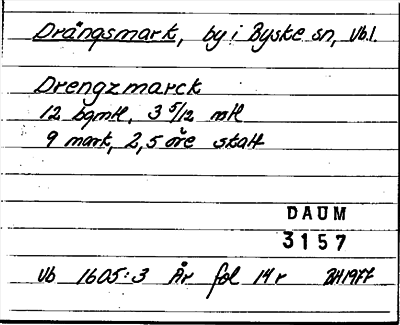 Drängsmark, by i Byske sn, Vb.l.
Drengzmarck
12 bgmtl, 3 5/12 mtl
9 mark, 2,5 öre skatt
DAUM
3157
Vb 1605:3 Är fol 14r